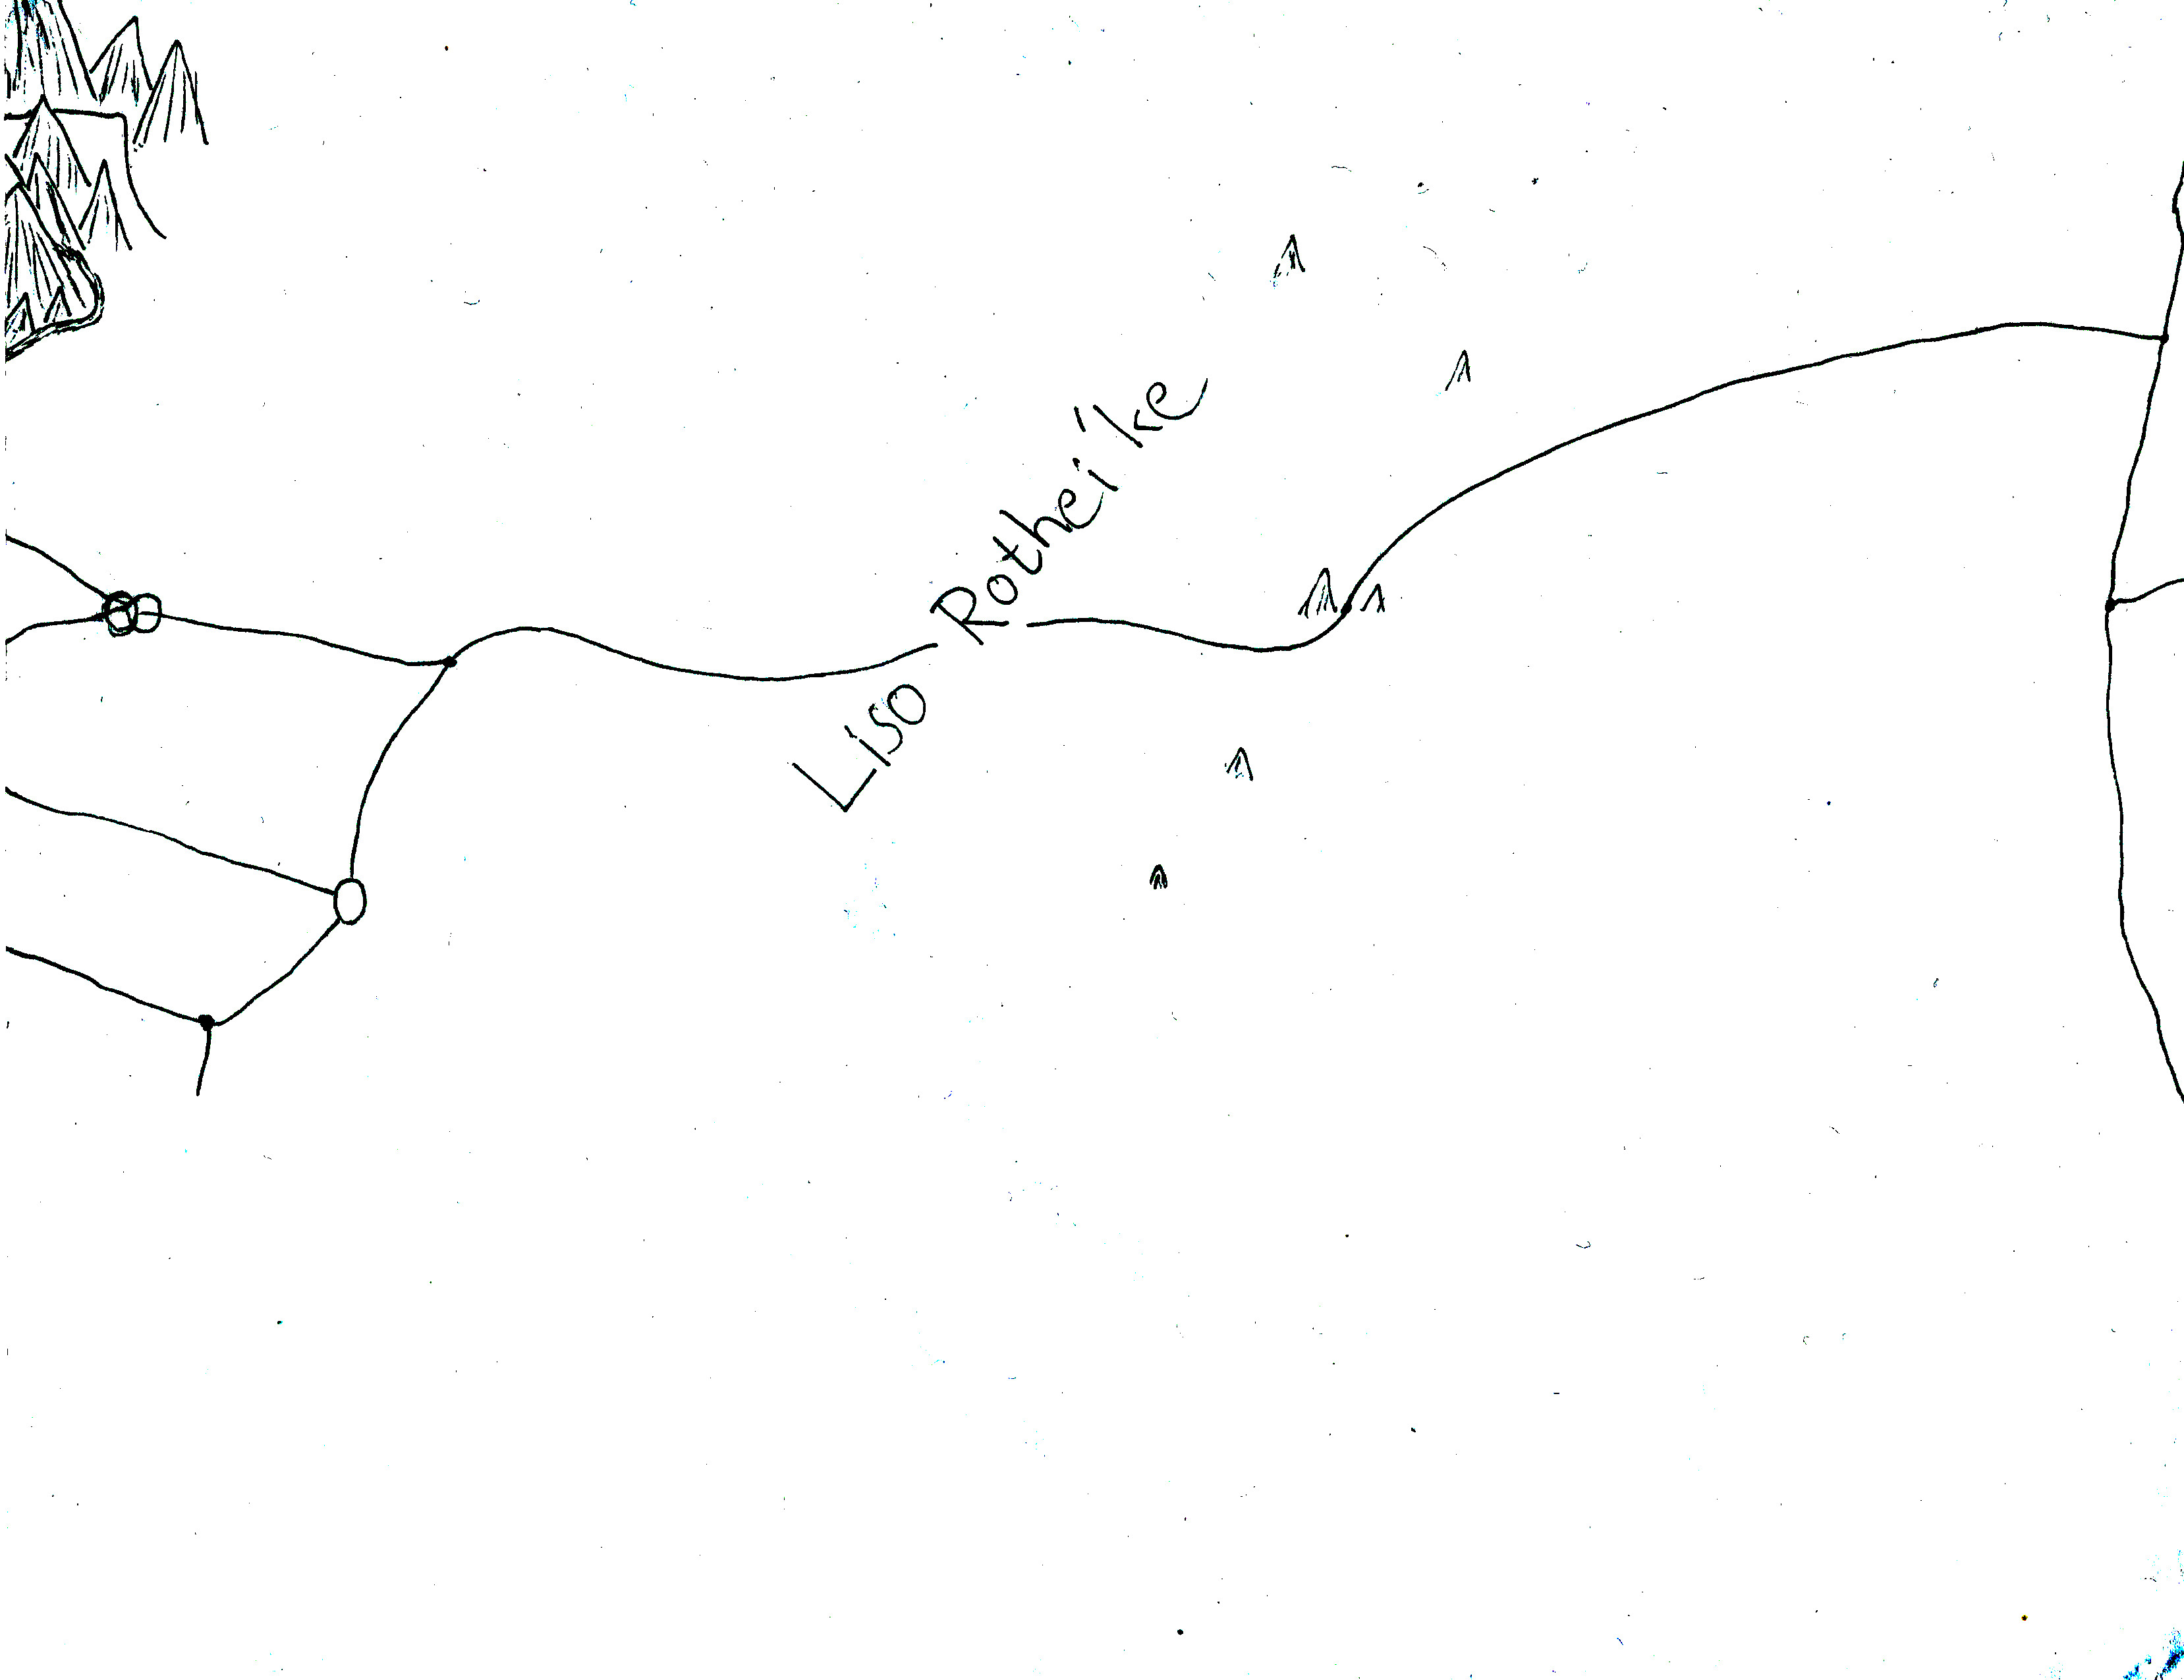 Liso Rotheilke